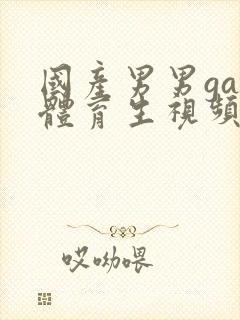 國產男男ga
體育生視頻
哎呦喂